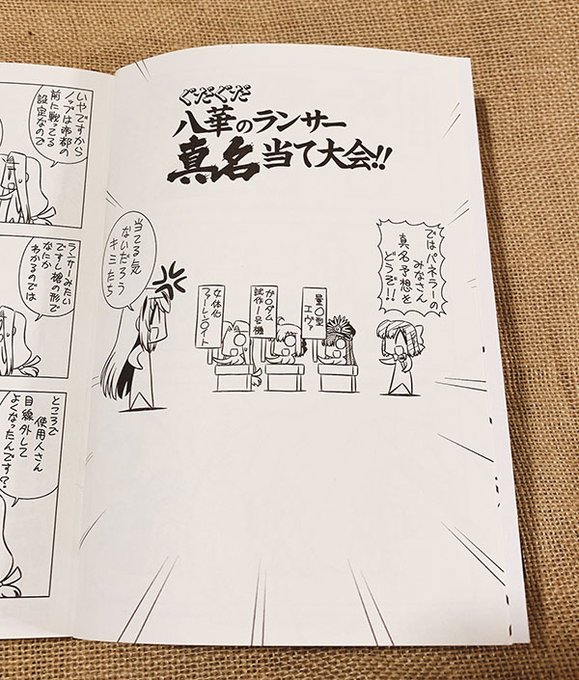 ぐだぐだ
八華のランサー
真名当て大会!!
ではパネラーの
みなさん
真名予想を
どうぞ!!
量〇型
エヴァ
ガ〇ダム
試作1号機
女体化
ファーレン〇イト
当てる気
ないだろう
キミたち
いやですから
ノッブは帝都の
前に戦ってる
設定なので
ランサーみたい
ですし槍の形で
なにか
わかるのでは
ところで
使用人さん
目線外して
よくなったんです?